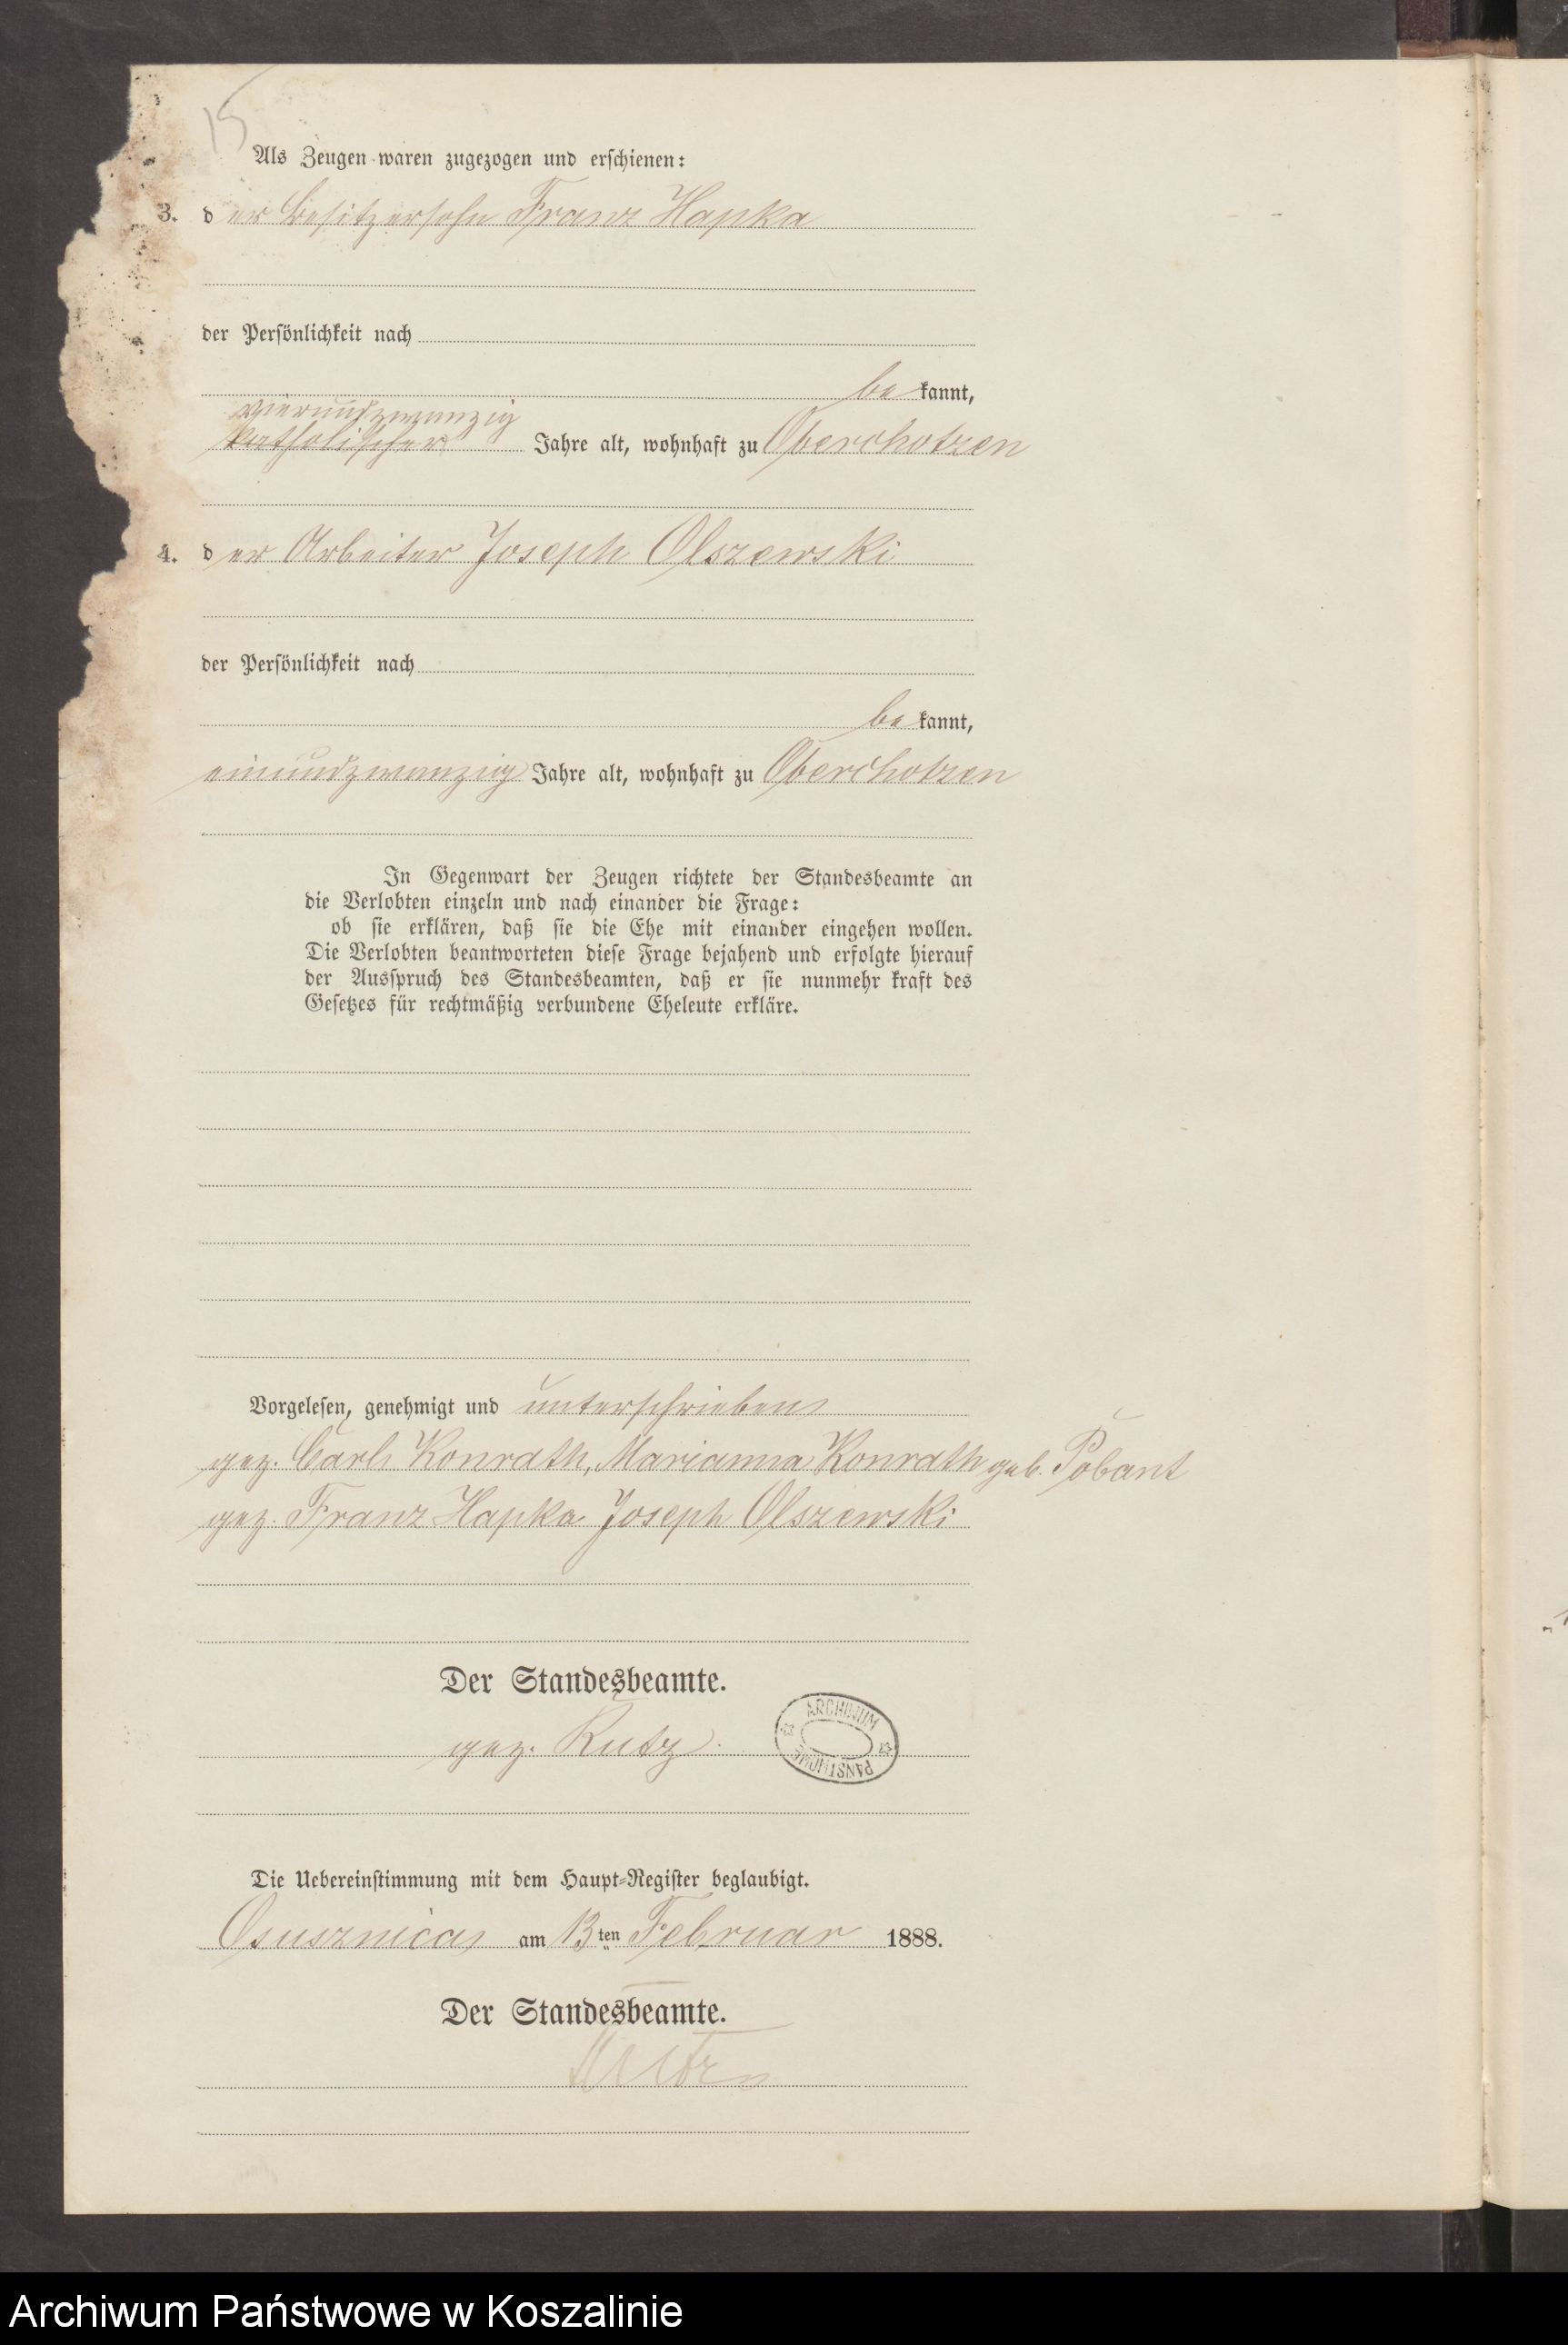 15
Als Zeugen waren zugezogen und erschienen:
3. der Besitzersohn Franz Hapka
der Persönlichkeit nach
bekannt,
vierundzwanzig
katholischer Jahre alt, wohnhaft zu Oberchotzen
4. der Arbeiter Joseph Olszewski
der Persönlichkeit nach
bekannt,
einundzwanzig Jahre alt, wohnhaft zu Oberchotzen
In Gegenwart der Zeugen richtete der Standesbeamte an
die Verlobten einzeln und nach einander die Frage:
ob sie erklären, daß sie die Ehe mit einander eingehen wollen.
Die Verlobten beantworteten diese Frage bejahend und erfolgte hierauf
der Ausspruch des Standesbeamten, daß er sie nunmehr kraft des
Gesetzes für rechtmäßig verbundene Eheleute erkläre.
Vorgelesen, genehmigt und unterschrieben
gez. Carl Konrath, Marianna Konrath geb. Pobant
gez. Franz Hapka Joseph Olszewski
Der Standesbeamte.
gez. Kutz.
ARCHIWUM
PAŃSTWOWE
Die Uebereinstimmung mit dem Haupt-Register beglaubigt.
Osusznica am 13ten Februar 1888.
Der Standesbeamte.
Kutz
Archiwum Państwowe w Koszalinie